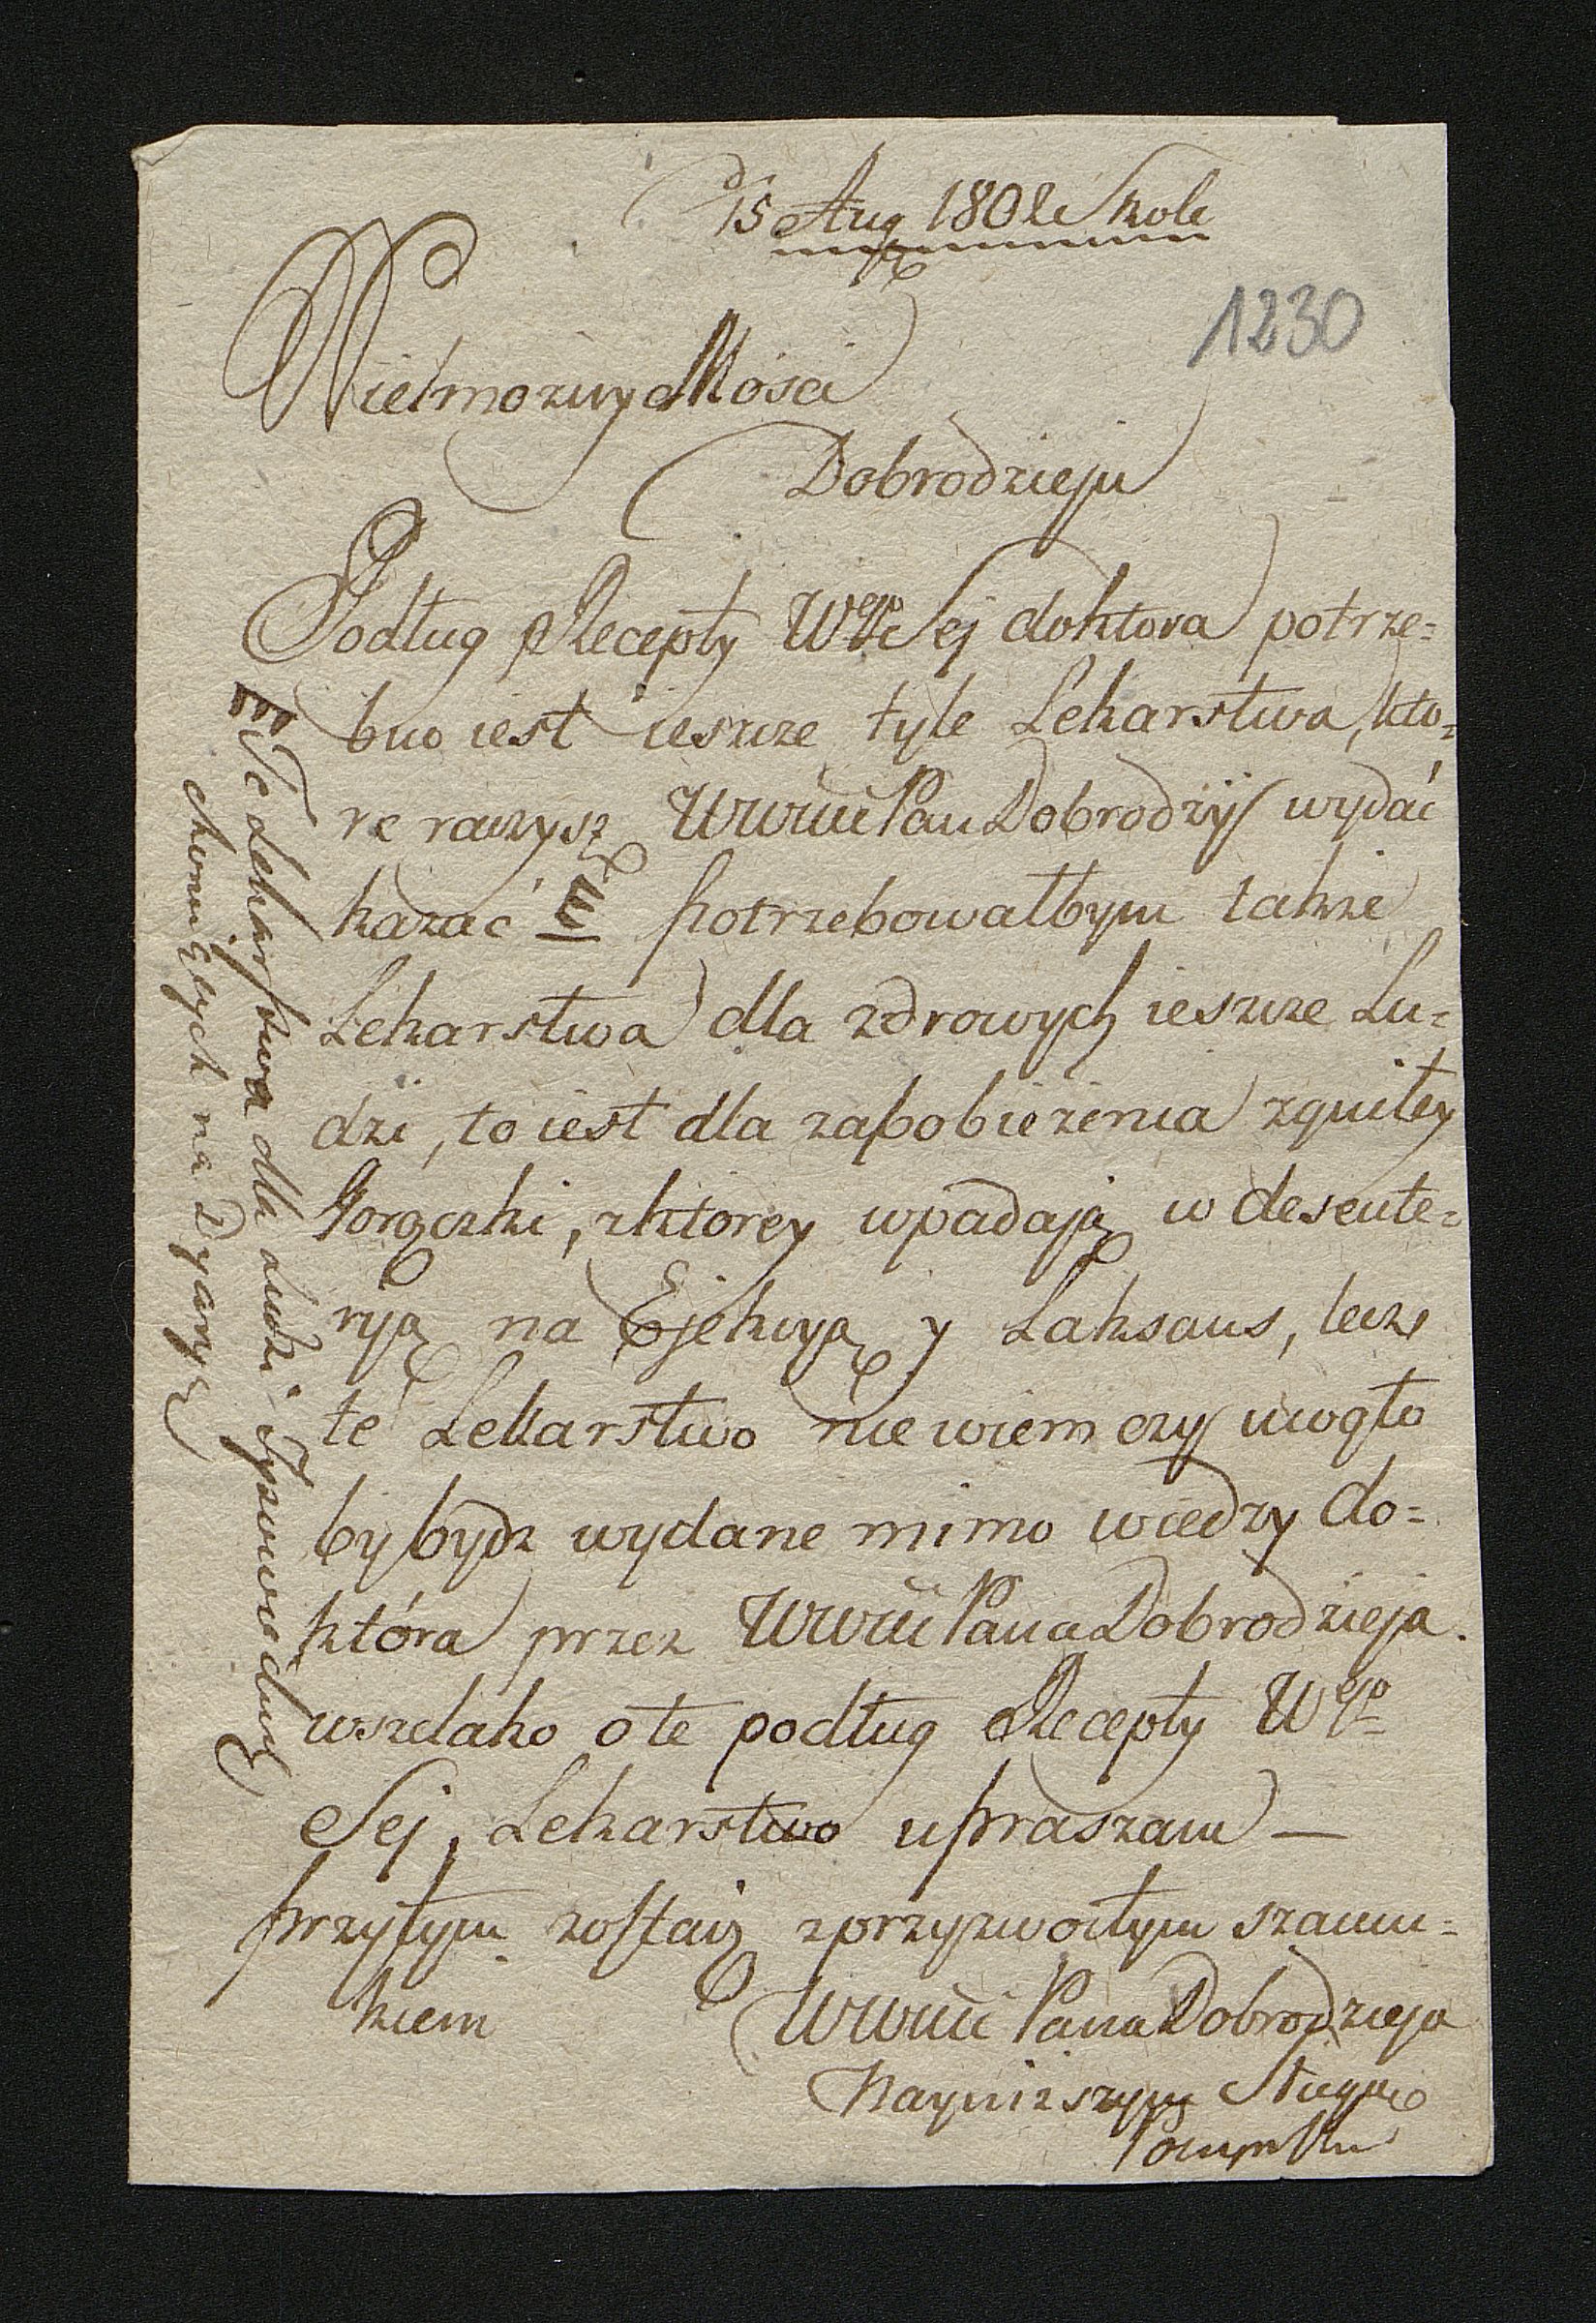 d. 15 Aug 1802 Skole
1230
Wielmozny Mości
Dobrodzieju
Podług Recepty Wgo Sej doktora potrze=
bno iest ieszcze tyle Lekarstwa, kto=
re raczysz WWMći Pan Dobrodzij wydać
kazać potrzebowałbym takze
Lekarstwa dla zdrowych ieszcze Lu=
dzi, to iest dla zapobiezenia zgniłey
Gorączki, zktorey wpadają w desente=
ryją na Ejekcyą y Laksans, lecz
te Lekarstwo nie wiem czy mogło
by bydz wydane mimo wiedzy do=
która przez WWMći Pana Dobrodzieja.
wszelako o te podług Recepty Wgo
Sej, Lekarstwo upraszam —
przytym zostaię zprzyzwoitym szacun=
kiem
WWMći Pana Dobrodzieja
Nayniższym Sługą
Te Lekarstwa dla Ludzi
na Dyaryą